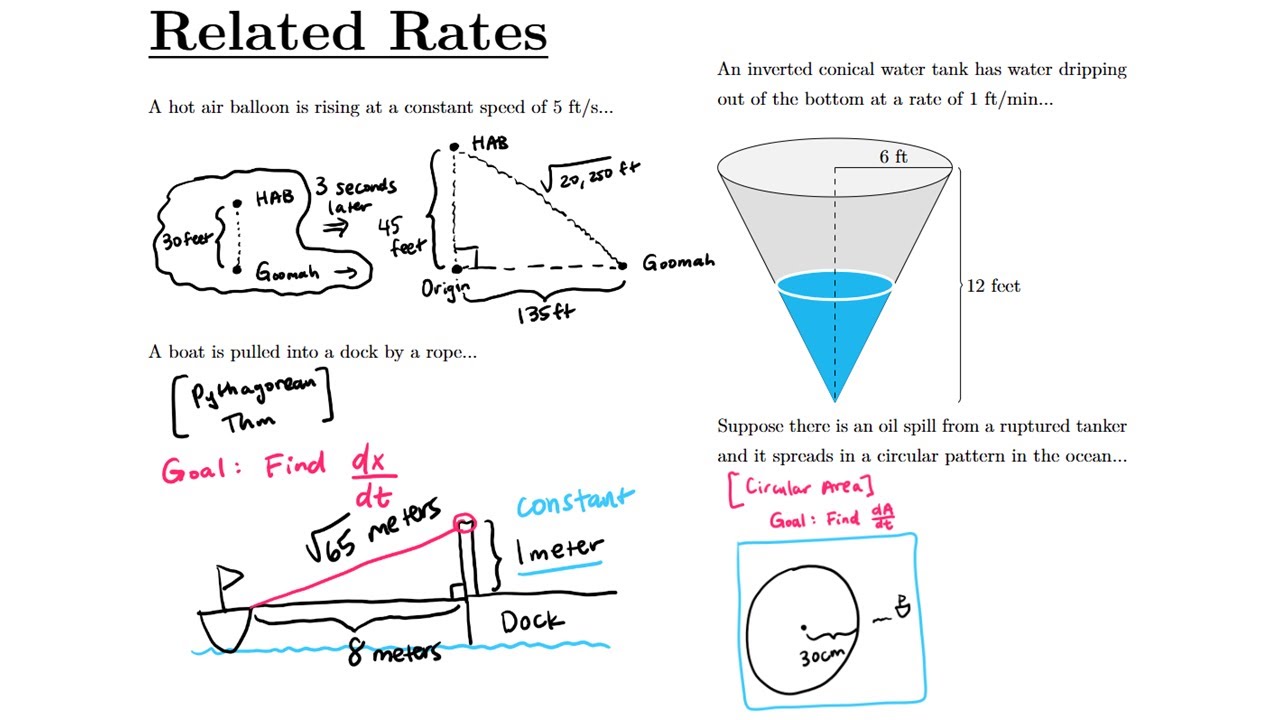 Related Rates
A hot air balloon is rising at a constant speed of 5 ft/s...
30 feet
HAB
Goomah →
3 seconds
later
⇒
HAB
45
feet
√20,250 ft
Goomah
Origin
135 ft
A boat is pulled into a dock by a rope...
[Pythagorean
Thm]
Goal: Find dx/dt
√65 meters
constant
1 meter
Dock
8 meters
An inverted conical water tank has water dripping
out of the bottom at a rate of 1 ft/min...
6 ft
12 feet
Suppose there is an oil spill from a ruptured tanker
and it spreads in a circular pattern in the ocean...
[Circular Area]
Goal: Find dA/dt
30cm